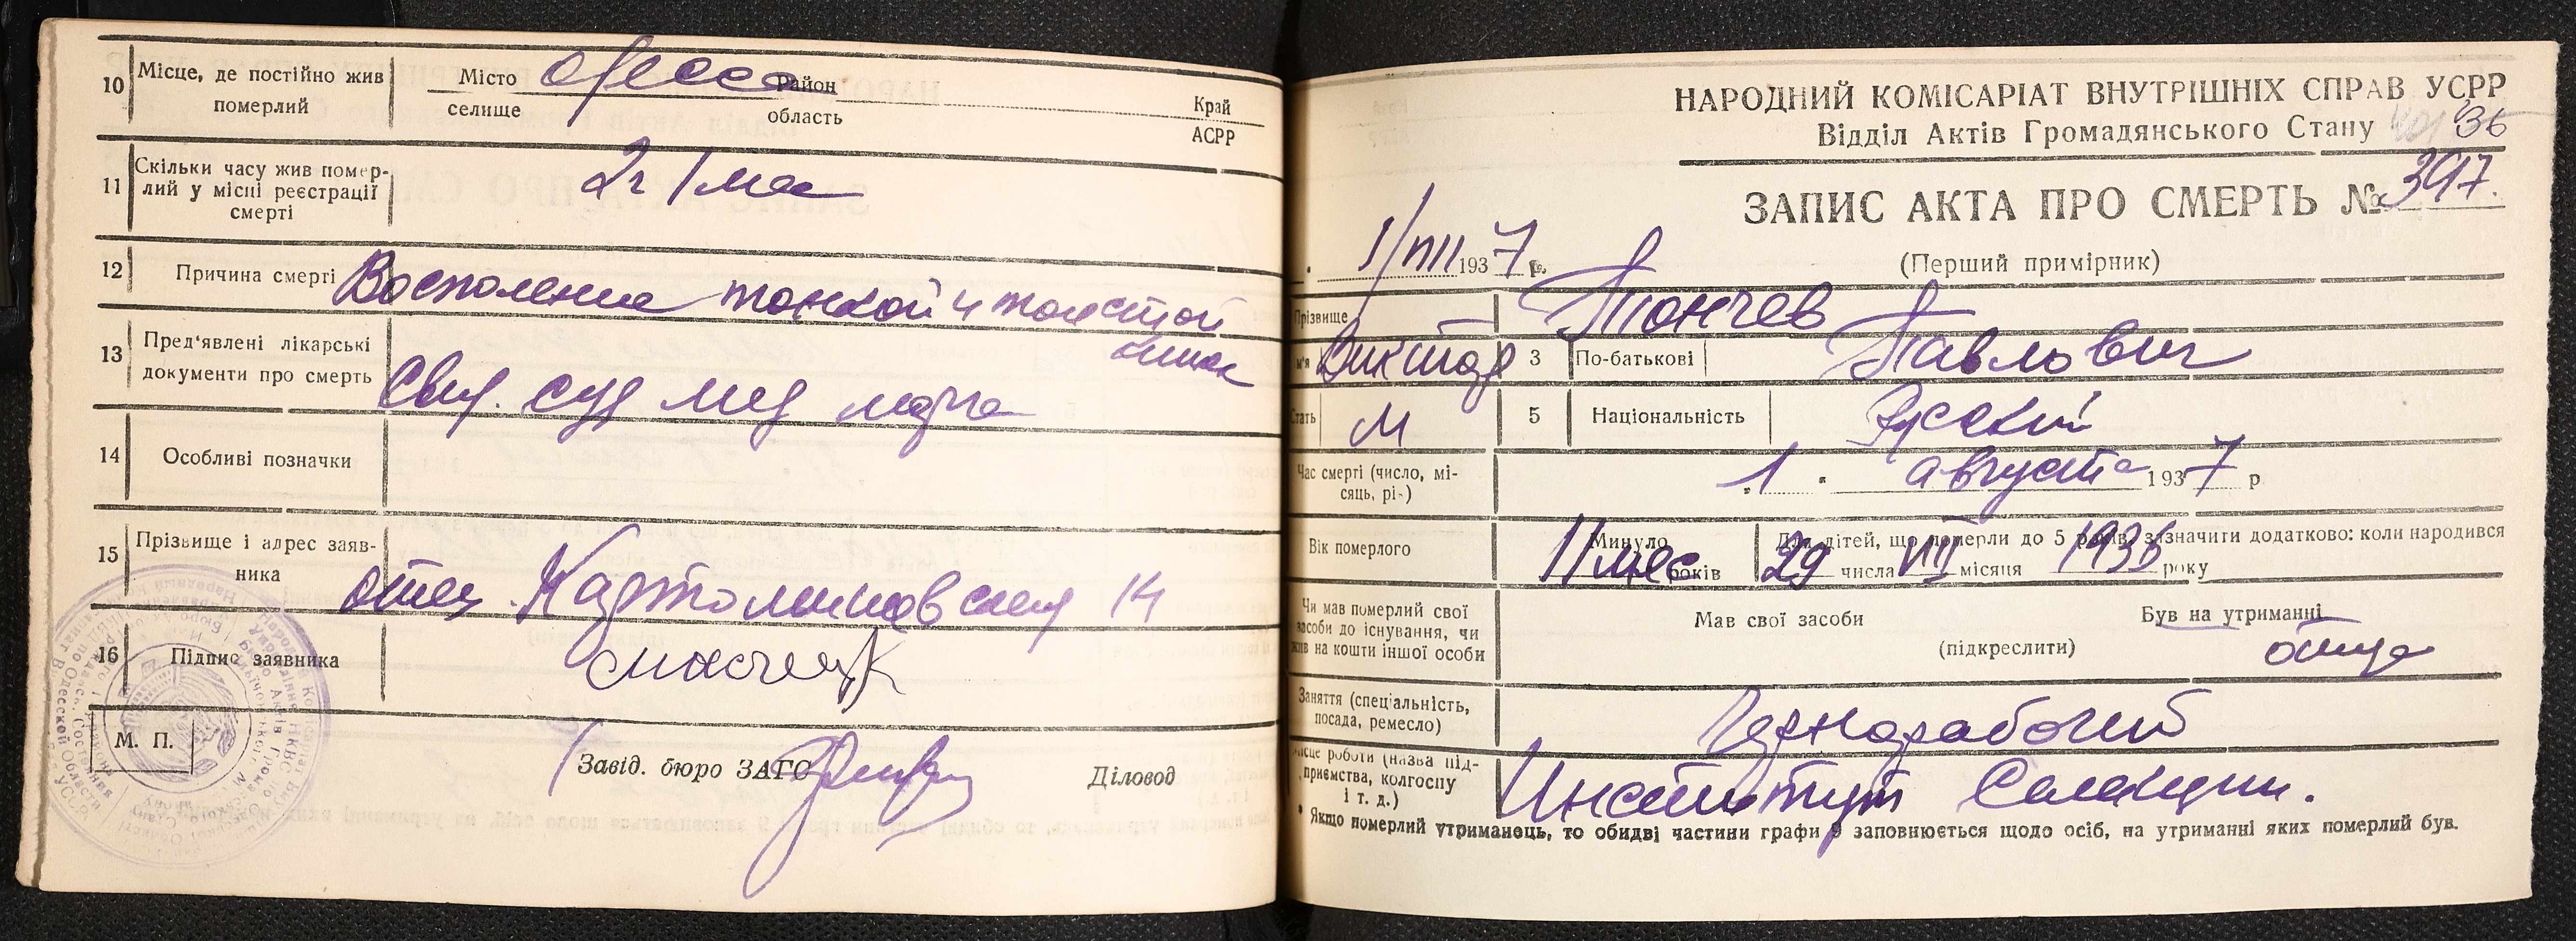 10 Місце, де постійно жив померлий
Місто Одесса Район
селище область
Край
АСРР
11 Скільки часу жив помер-
лий у місці реєстрації
смерті
2г 1 мес
12 Причина смерті Восполение тонкой и толстой
кишок
13 Пред'явлені лікарські
документи про смерть
Свид. суд мед морга
14 Особливі позначки
15 Прізвище і адрес заяв-
ника
отец
14
16 Підпис заявника
М. П.
Завід. бюро ЗАГС
Діловод
НАРОДНИЙ КОМІСАРІАТ ВНУТРІШНІХ СПРАВ УСРР
Відділ Актів Громадянського Стану
36
ЗАПИС АКТА ПРО СМЕРТЬ № 397.
1/VIII 1937 р.
(Перший примірник)
Прізвище Тончев
м'я Виктор 3 По-батькові Павлович
Стать М 5 Національність Русский
Час смерті (число, мі-
сяць, рі-)
„1" августа 1937 р
Вік померлого
Минуло 11 мес років
Для дітей, що померли до 5 років, зазначити додатково: коли народився
29 числа VIII місяця 1936 року
Чи мав померлий свої
засоби до існування, чи
жив на кошти іншої особи
Мав свої засоби
(підкреслити)
Був на утриманні
отца
Заняття (спеціальність,
посада, ремесло)
Чернорабочий
місце роботи (назва під-
приємства, колгоспу
і т. д.)
Институт Селекции.
* Якщо померлий утриманець, то обидві частини графи 9 заповнюється щодо осіб, на утриманні яких померлий був.